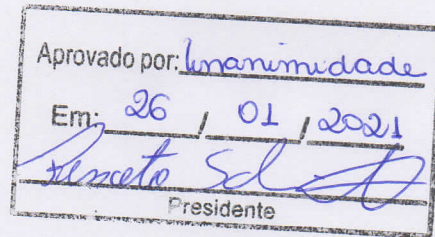 Aprovado por: Unanimidade
Em: 26 / 01 / 2021
Presidente